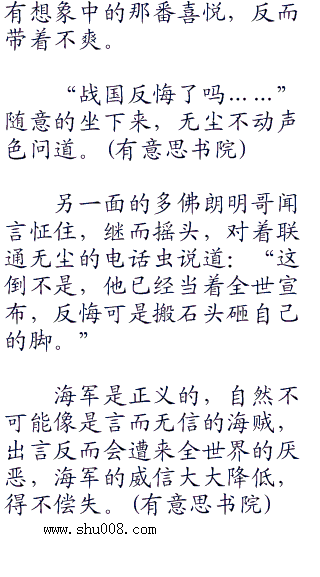 有想象中的那番喜悦，反而
带着不爽。
“战国反悔了吗……”
随意的坐下来，无尘不动声
色问道。(有意思书院)
另一面的多佛朗明哥闻
言怔住，继而摇头，对着联
通无尘的电话虫说道：“这
倒不是，他已经当着全世宣
布，反悔可是搬石头砸自己
的脚。”
海军是正义的，自然不
可能像是言而无信的海贼，
出言反而会遭来全世界的厌
恶，海军的威信大大降低，
得不偿失。(有意思书院)
www.shu008.com